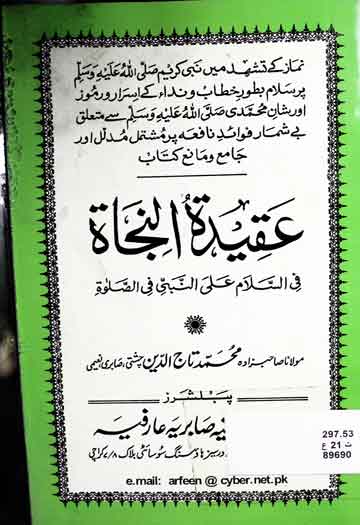 نماز کے تشہد میں نبی کریم صَلَّی اللہُ عَلَیْہِ وَسَلَّم
پر سلام بطور خطاب و نداء کے اسرار و رموز
اور شانِ محمدی صَلَّی اللہُ عَلَیْہِ وَسَلَّم سے متعلق
بے شمار فوائدِ نافعہ پر مشتمل مدلل اور
جامع و مانع کتاب
عقیدۃ النجاۃ
فی السلام علی النبی فی الصلوٰۃ
مولانا صاحبزادہ محمد تاج الدین چشتی، صابری نعیمی
پبلشرز
یہ صابریہ عارفیہ
ہاؤسنگ سوسائٹی بلاک ۷/۸ کراچی
297.53
ت 21 ع
89690
e.mail: arfeen @ cyber.net.pk